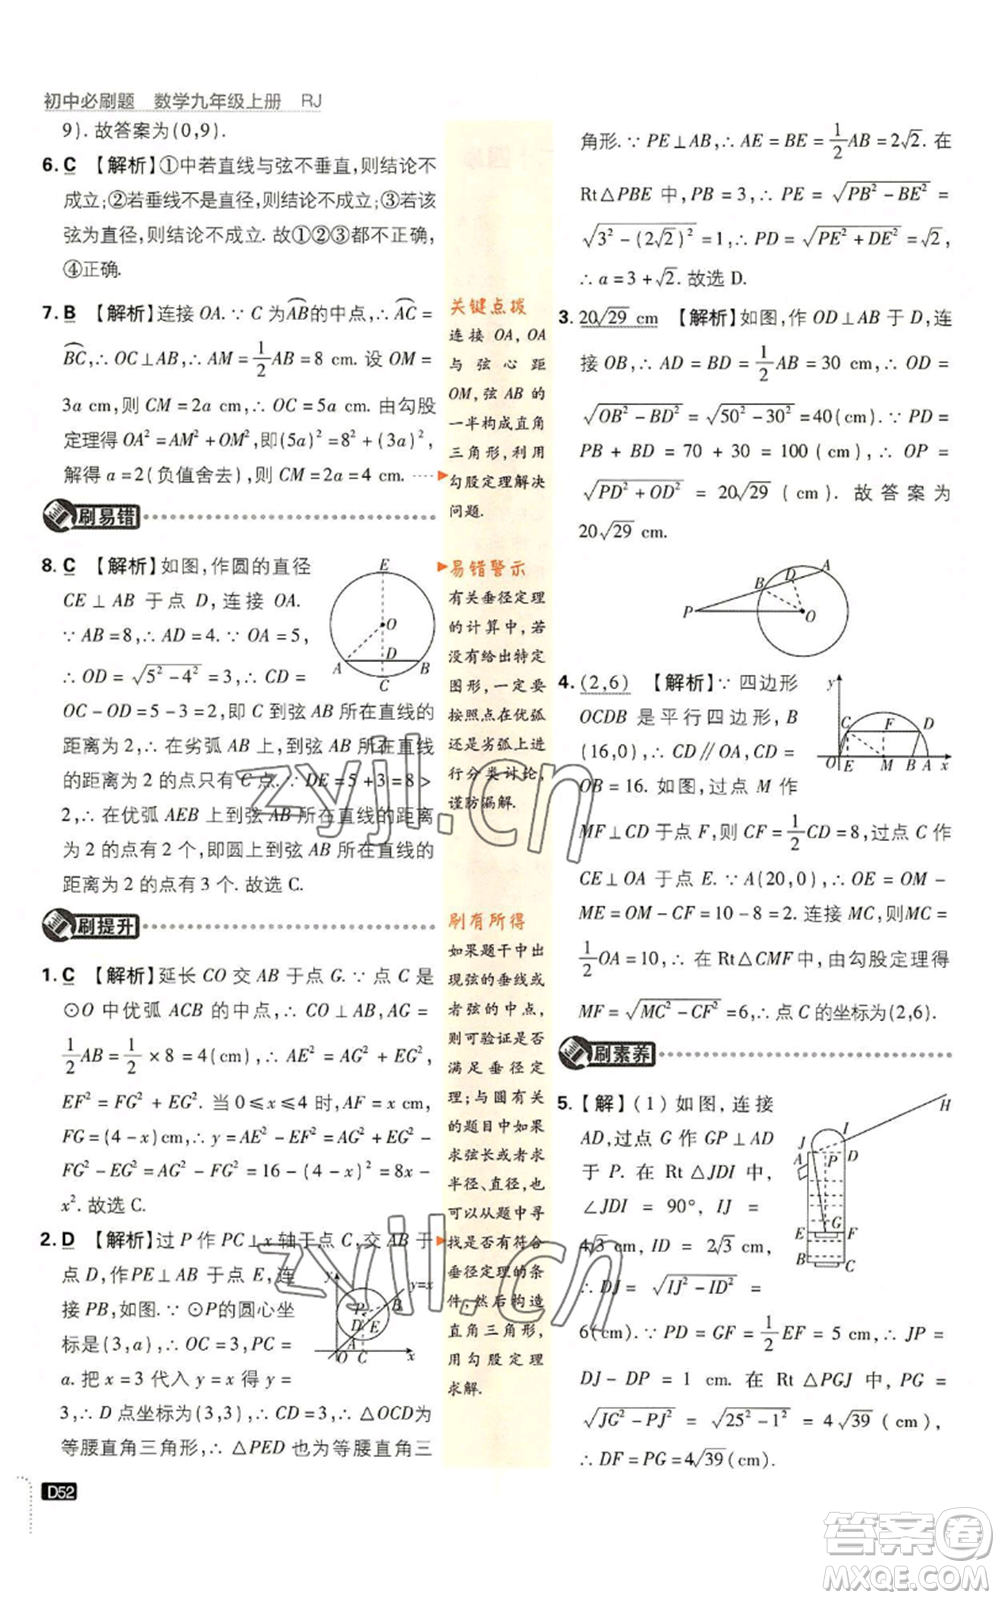 初中必刷题 数学九年级上册 RJ
9). 故答案为(0,9).
6. C 【解析】①中若直线与弦不垂直,则结论不
成立;②若垂线不是直径,则结论不成立;③若该
弦为直径,则结论不成立. 故①②③都不正确,
④正确.
7. B 【解析】连接 OA. ∵ C 为AB的中点,∴ AC =
BC,∴ OC⊥AB,∴ AM = 1/2 AB = 8 cm. 设 OM =
3a cm,则 CM = 2a cm,∴ OC = 5a cm. 由勾股
定理得 OA² = AM² + OM²,即(5a)² = 8² + (3a)²,
解得 a = 2(负值舍去),则 CM = 2a = 4 cm.
刷易错
8. C 【解析】如图,作圆的直径
CE⊥AB 于点 D,连接 OA.
∵ AB = 8,∴ AD = 4. ∵ OA = 5,
∴ OD = √(5² - 4²) = 3,∴ CD =
OC - OD = 5 - 3 = 2,即 C 到弦 AB 所在直线的
距离为 2,∴ 在劣弧 AB 上,到弦 AB 所在直线
的距离为 2 的点只有 C 点. ∵ DE = 5 + 3 = 8 >
2,∴ 在优弧 AEB 上到弦 AB 所在直线的距离
为 2 的点有 2 个,即圆上到弦 AB 所在直线的距
离为 2 的点有 3 个. 故选 C.
E
O
A D B
C
刷提升
1. C 【解析】延长 CO 交 AB 于点 G. ∵ 点 C 是
⊙O 中优弧 ACB 的中点,∴ CO⊥AB,∴ AG =
1/2 AB = 1/2 × 8 = 4(cm),∴ AE² = AG² + EG²,
EF² = FG² + EG². 当 0≤x≤4 时,AF = x cm,
FG = (4 - x) cm,∴ y = AE² - EF² = AG² + EG² -
FG² - EG² = AG² - FG² = 16 - (4 - x)² = 8x -
x². 故选 C.
2. D 【解析】过 P 作 PC⊥x 轴于点 C,交 AB 于
点 D,作 PE⊥AB 于点 E,连
接 PB,如图. ∵ ⊙P 的圆心坐
标是(3,a),∴ OC = 3,PC =
a. 把 x = 3 代入 y = x 得 y =
3,∴ D 点坐标为(3,3),∴ CD = 3,∴ △OCD 为
等腰直角三角形,∴ △PED 也为等腰直角三
y y=x
P B
D E
A
O C x
D52
关键点拨
连接 OA, OA
与弦心距
OM,弦 AB 的
一半构成直角
三角形,利用
勾股定理解决
问题.
易错警示
有关垂径定理
的计算中,若
没有给出特定
图形,一定要
按照点在优弧
还是劣弧上进
行分类讨论,
谨防漏解.
刷有所得
如果题干中出
现弦的垂线或
者弦的中点,
则可验证是否
满足垂径定
理;与圆有关
的题目中如果
求弦长或者求
半径、直径,也
可以从题中寻
找是否有符合
垂径定理的条
件,然后构造
直角三角形,
用勾股定理
求解.
角形. ∵ PE⊥AB,∴ AE = BE = 1/2 AB = 2√2. 在
Rt△PBE 中,PB = 3,∴ PE = √(PB² - BE²) =
√(3² - (2√2)²) = 1,∴ PD = √(PE² + DE²) = √2,
∴ a = 3 + √2. 故选 D.
3. 20√29 cm 【解析】如图,作 OD⊥AB 于 D,连
接 OB,∴ AD = BD = 1/2 AB = 30 cm,∴ OD =
√(OB² - BD²) = √(50² - 30²) = 40(cm). ∵ PD =
PB + BD = 70 + 30 = 100(cm),∴ OP =
√(PD² + OD²) = 20√29 (cm). 故答案为
20√29 cm.
A
D
B
P O
4. (2,6) 【解析】∵ 四边形
OCDB 是平行四边形,B
(16,0),∴ CD∥OA,CD =
OB = 16. 过点 M 作
MF⊥CD 于点 F,则 CF = 1/2 CD = 8,过点 C 作
CE⊥OA 于点 E. ∵ A(20,0),∴ OE = OM -
ME = OM - CF = 10 - 8 = 2. 连接 MC,则 MC =
1/2 OA = 10,∴ 在 Rt△CMF 中,由勾股定理得
MF = √(MC² - CF²) = 6,∴ 点 C 的坐标为(2,6).
y
C F D
O E M B A x
刷素养
5. 【解】(1) 如图,连接
AD,过点 G 作 GP⊥AD
于 P. 在 Rt△JDI 中,
∠JDI = 90°, IJ =
4√3 cm, ID = 2√3 cm,
∴ DJ = √(IJ² - ID²) =
6(cm). ∵ PD = GF = 1/2 EF = 5 cm,∴ JP =
DJ - PD = 1 cm. 在 Rt△PGJ 中,PG =
√(JG² - PJ²) = √(25² - 1²) = 4√39 (cm),
∴ DF = PG = 4√39 (cm).
H
J I
A P D
G
E F
B C
zyjl.cn
zyjl.cn
答案卷
MXQE.COM